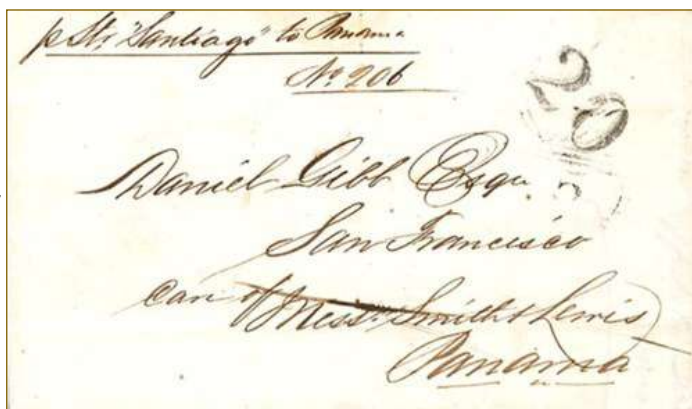 p Str "Santiago" to Panama
No 206
20
Daniel Gibb Esqr
San Francisco
Care of Messrs Smith & Lewis
Panama